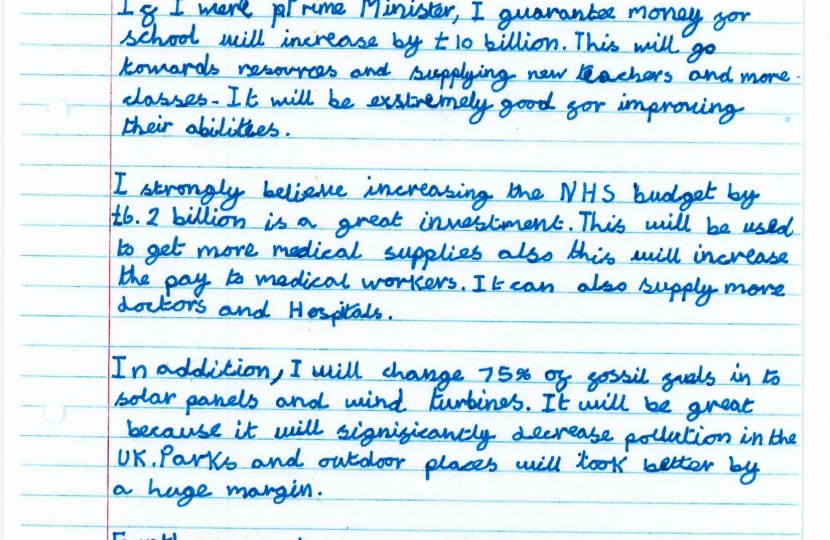 If I were prime Minister, I guarantee money for
school will increase by £10 billion. This will go
towards resources and supplying new teachers and more
classes. It will be exstremely good for improving
their abilities.
I strongly believe increasing the NHS budget by
£6.2 billion is a great investment. This will be used
to get more medical supplies also this will increase
the pay to medical workers. It can also supply more
doctors and Hospitals.
In addition, I will change 75% of fossil fuels in to
solar panels and wind turbines. It will be great
because it will significantly decrease pollution in the
UK. Parks and outdoor places will look better by
a huge margin.